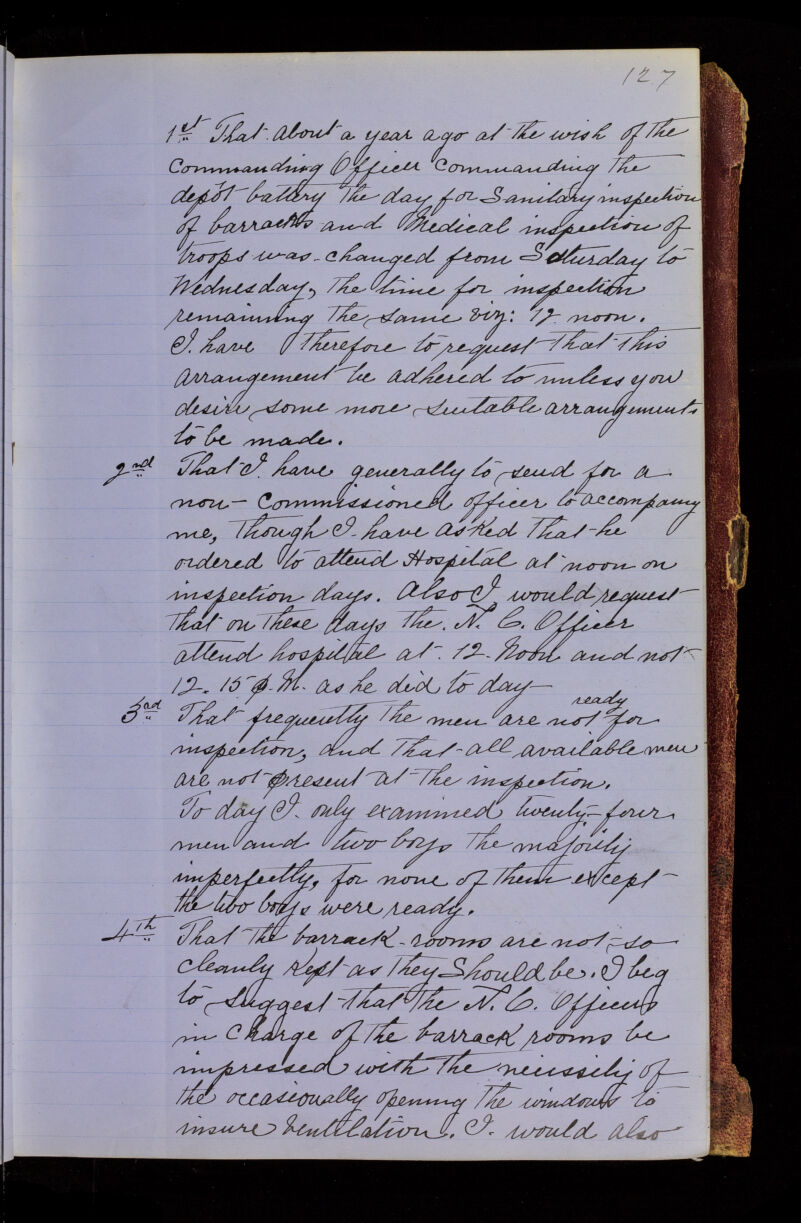 127
1st That about a year ago at the wish of the
Commanding Officer Commanding the
depôt battery the day for Sanitary inspection
of barracks and Medical inspection of
troops was changed from Saturday to
Wednesday, the time for inspection
remaining the same viz: 12 noon.
I have therefore to request that this
arrangement be adhered to unless you
desire some more suitable arrangements
to be made.
2nd That I have generally to send for a
non-Commissioned officer to accompany
me, though I have asked that he
ordered to attend Hospital at noon on
inspection days. Also I would request
that on these days the N. C. Officer
attend hospital at 12 Noon and not
12.15 P.M. as he did to day
ready
3rd That frequently the men are not for
inspection, and that all available men
are not present at the inspection.
To day I only examined twenty-four
men and two boys the majority
imperfectly, for none of them except
the two boys were ready.
4th That the barrack-rooms are not so
cleanly kept as they should be. I beg
to suggest that the N. C. Officers
in charge of the barrack rooms be
impressed with the necessity of
the occasionally opening the windows to
insure ventilation. I would also